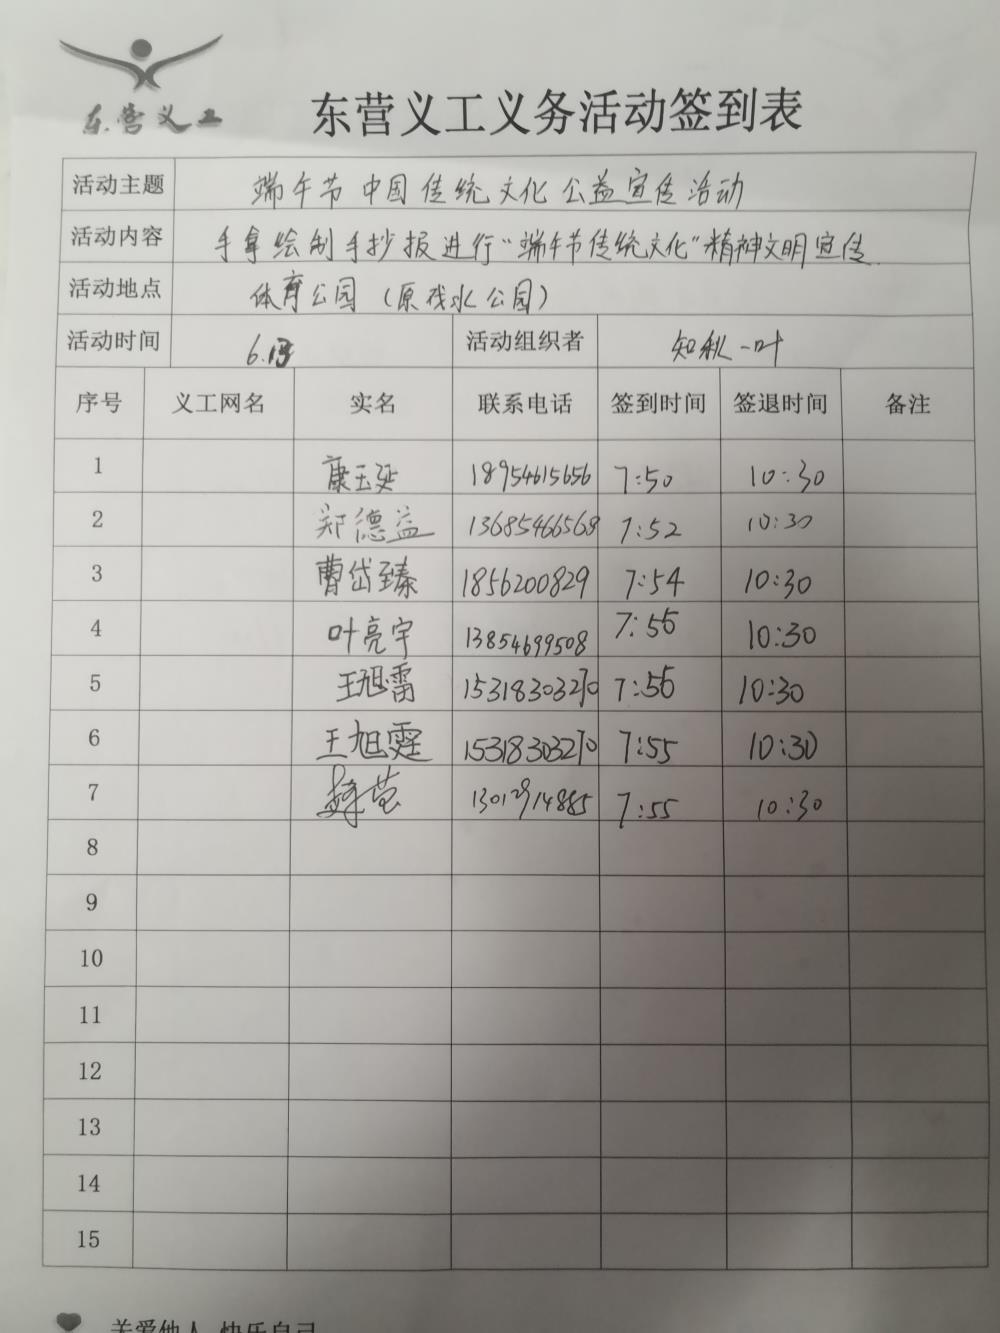 东营义工
东营义工义务活动签到表
活动主题 端午节中国传统文化公益宣传活动
活动内容 手拿绘制手抄报进行“端午节传统文化”精神文明宣传.
活动地点 体育公园（原戏水公园）
活动时间 6.13 活动组织者 知秋一叶
序号 义工网名 实名 联系电话 签到时间 签退时间 备注
1 康玉延 18954615656 7:50 10:30
2 郑德益 13685466568 7:52 10:30
3 曹岱臻 1856200829 7:54 10:30
4 叶亮宇 13854699508 7:55 10:30
5 王旭雷 15318303270 7:56 10:30
6 王旭霆 15318303270 7:55 10:30
7 13012914885 7:55 10:30
8
9
10
11
12
13
14
15
关爱他人 快乐自己